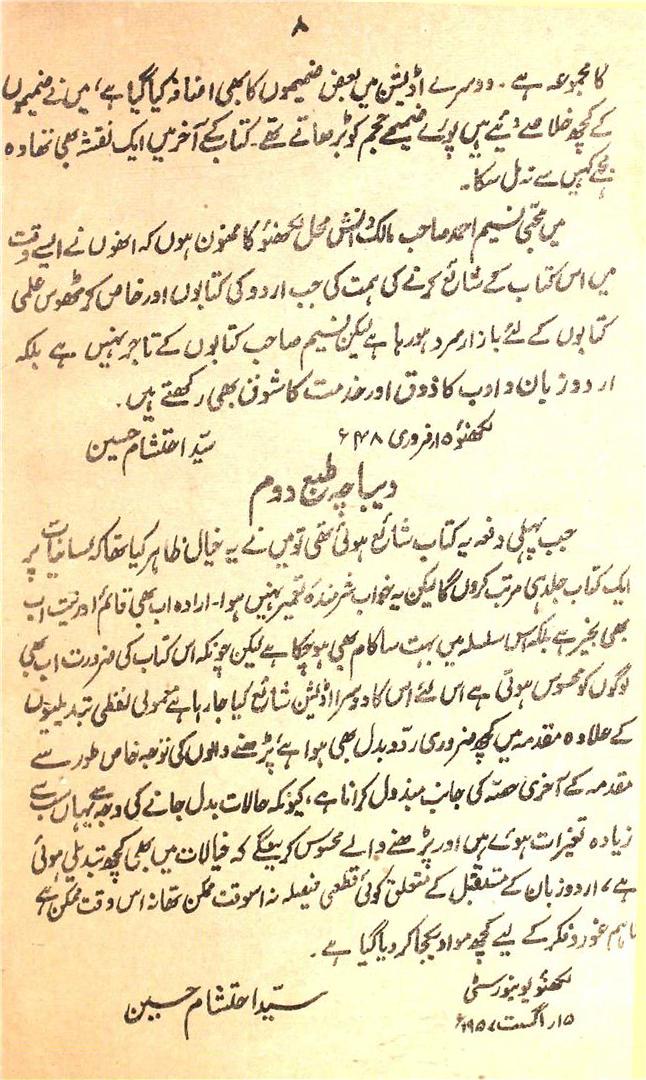 ۸
کا مجموعہ ہے۔ دوسرے اڈیشن میں بعض ضمیموں کا بھی اضافہ کیا گیا ہے، میں نے ضمیموں
کے کچھ خلاصے دئیے ہیں پورے ضمیمے حجم کو بڑھاتے تھے۔ کتاب کے آخر میں ایک نقشہ بھی تھا وہ
مجھے کہیں سے نہ مل سکا۔
میں محبّی نسیم احمد صاحب مالک دانش محل لکھنؤ کا ممنون ہوں کہ انھوں نے ایسے وقت
میں اس کتاب کے شائع کرنے کی ہمت کی جب اردو کی کتابوں اور خاص کر ٹھوس علمی
کتابوں کے لئے بازار سرد ہو رہا ہے لیکن نسیم صاحب کتابوں کے تاجر نہیں ہے بلکہ
اردو زبان و ادب کا ذوق اور خدمت کا شوق بھی رکھتے ہیں۔
لکھنؤ ۱۵ر فروری ۴۸ء
سیّد احتشام حسین
دیباچہ طبع دوم
جب پہلی دفعہ یہ کتاب شائع ہوئی تھی تو میں نے یہ خیال ظاہر کیا تھا کہ لسانیات پر
ایک کتاب جلد ہی مرتب کروں گا لیکن یہ خواب شرمندۂ تعبیر نہیں ہوا۔ ارادہ اب بھی قائم اور نیت اب
بھی بخیر ہے بلکہ اس سلسلہ میں بہت سا کام بھی ہو چکا ہے لیکن چونکہ اس کتاب کی ضرورت اب بھی
لوگوں کو محسوس ہوتی ہے اس لئے اس کا دوسرا اڈیشن شائع کیا جا رہا ہے معمولی لفظی تبدیلیوں
کے علاوہ مقدمہ میں کچھ ضروری ردّ و بدل بھی ہوا ہے، پڑھنے والوں کی توجہ خاص طور سے
مقدمہ کے آخری حصّہ کی جانب مبذول کرانا ہے، کیونکہ حالات بدل جانے کی وجہ سے یہاں سب سے
زیادہ تغیرات ہوئے ہیں اور پڑھنے والے محسوس کرینگے کہ خیالات میں بھی کچھ تبدیلی ہوئی
ہے، اردو زبان کے مستقبل کے متعلق کوئی قطعی فیصلہ نہ اسوقت ممکن تھا نہ اس وقت ممکن ہے
تاہم غور و فکر کے لیے کچھ مواد یکجا کر دیا گیا ہے۔
لکھنؤ یونیورسٹی
سیّد احتشام حسین
۱۵ر اگست